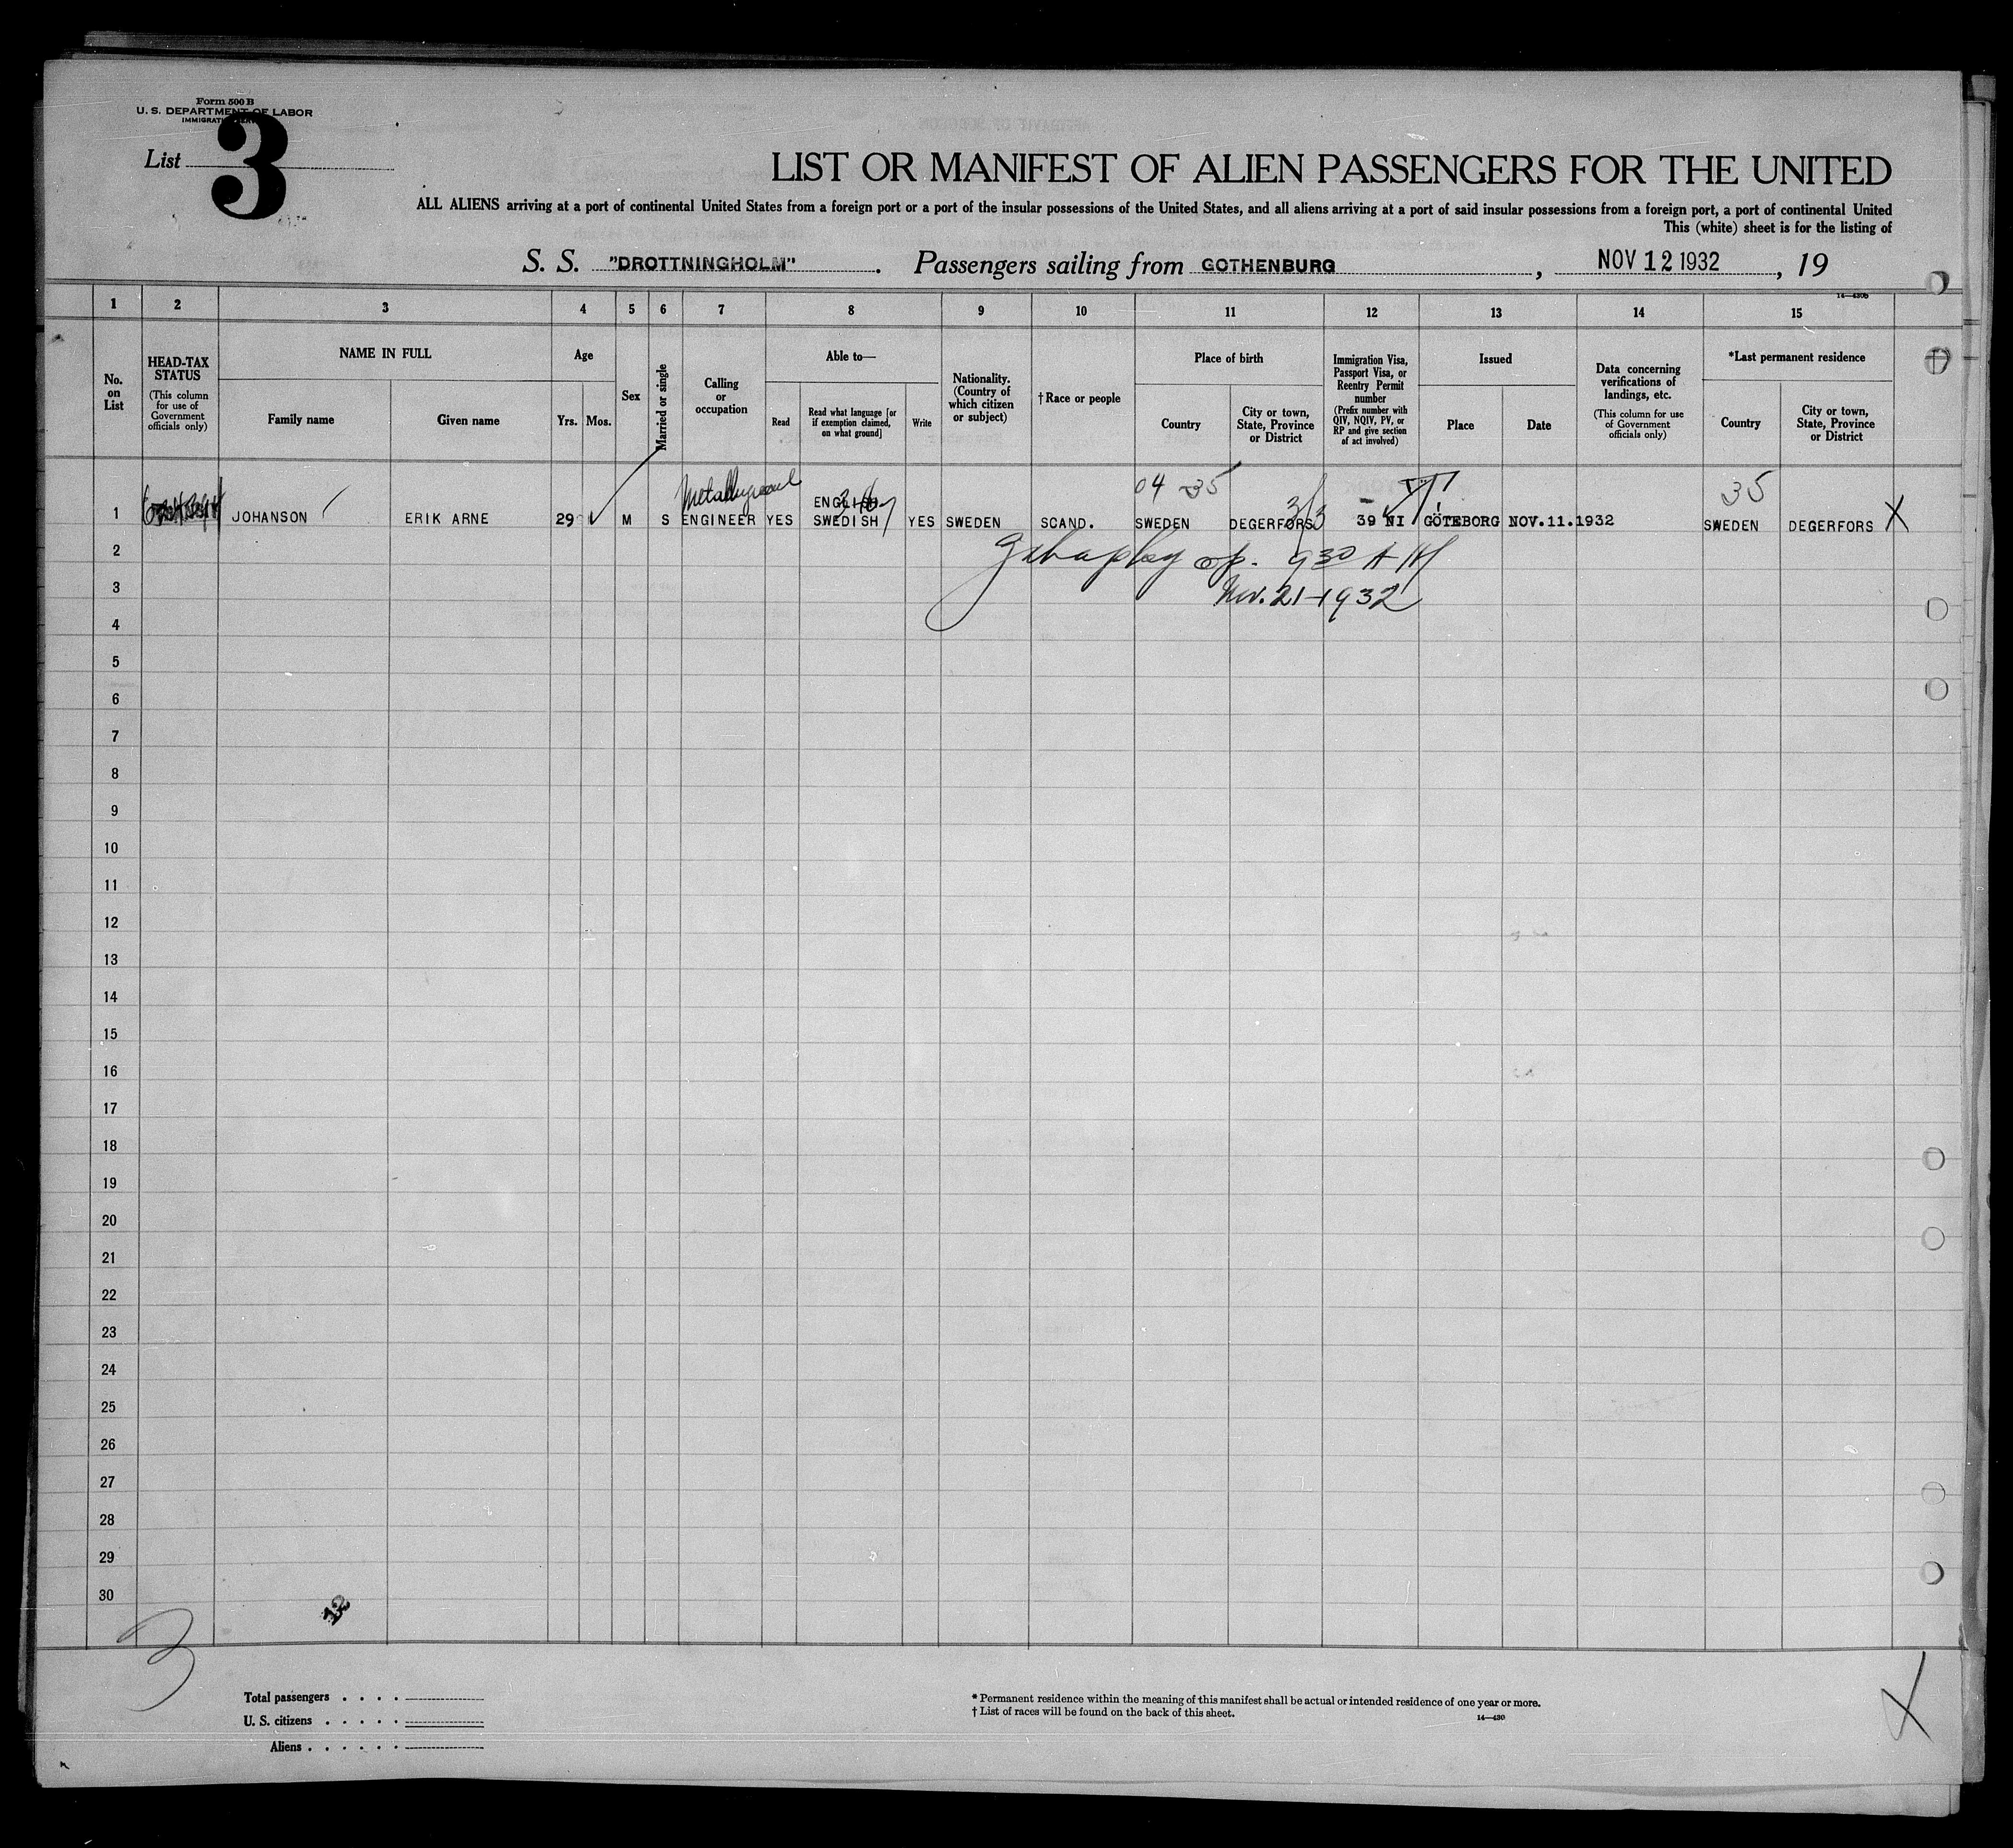 Form 500 B
U. S. DEPARTMENT OF LABOR
List 3
LIST OR MANIFEST OF ALIEN PASSENGERS FOR THE UNITED
ALL ALIENS arriving at a port of continental United States from a foreign port or a port of the insular possessions of the United States, and all aliens arriving at a port of said insular possessions from a foreign port, a port of continental United
This (white) sheet is for the listing of
S. S. "DROTTNINGHOLM". Passengers sailing from GOTHENBURG, NOV 12 1932, 19
1 2 3 4 5 6 7 8 9 10 11 12 13 14 15
No. on List
HEAD-TAX STATUS
(This column for use of Government officials only)
NAME IN FULL
Family name
Given name
Age
Yrs. Mos.
Sex
Married or single
Calling or occupation
Able to—
Read
Read what language [or if exemption claimed, on what ground]
Write
Nationality. (Country of which citizen or subject)
† Race or people
Place of birth
Country
City or town, State, Province or District
Immigration Visa, Passport Visa, or Reentry Permit number
(Prefix number with QIV, NQIV, PV, or RP and give section of act involved)
Issued
Place
Date
Data concerning verifications of landings, etc.
(This column for use of Government officials only)
*Last permanent residence
Country
City or town, State, Province or District
04 35 35
Metallurgical ENGLISH
1 JOHANSON ERIK ARNE 29 M S ENGINEER YES SWEDISH YES SWEDEN SCAND. SWEDEN DEGERFORS 39 NI GÖTEBORG NOV.11.1932 SWEDEN DEGERFORS X
2 9 30 AM
3 Nov. 21-1932
4
5
6
7
8
9
10
11
12
13
14
15
16
17
18
19
20
21
22
23
24
25
26
27
28
29
30
12
3
Total passengers . . . .
U. S. citizens . . . . .
Aliens . . . . . .
* Permanent residence within the meaning of this manifest shall be actual or intended residence of one year or more.
† List of races will be found on the back of this sheet.
14—430
X